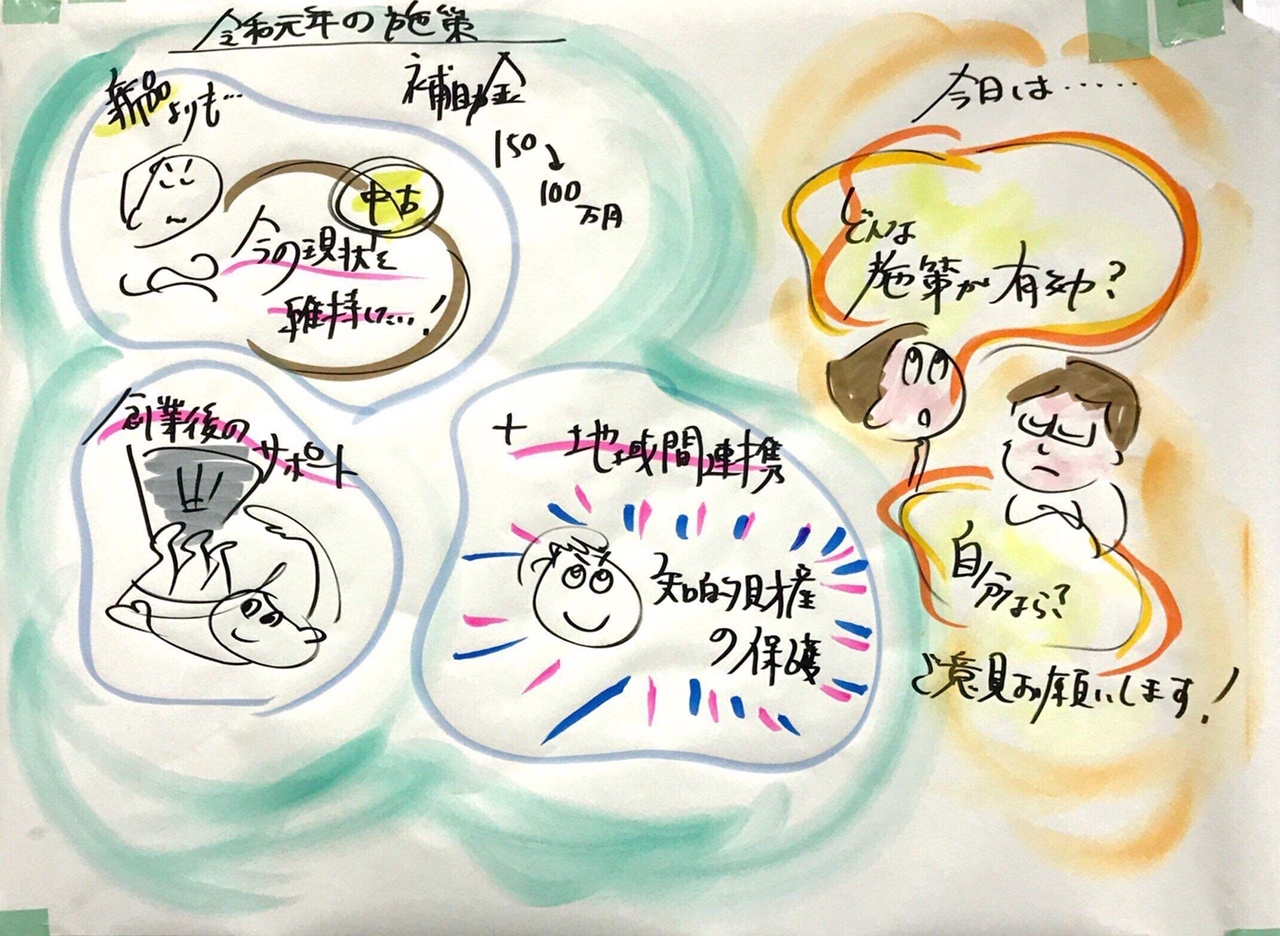 令和元年の施策
新品よりも…
補助金
150
↓
100
万円
中古
今の現状を
維持したい…!
創業後の
サポート
+ 地域間連携
知的財産
の保護
今日は……
どんな
施策が有効?
自分なら?
ご意見お願いします!